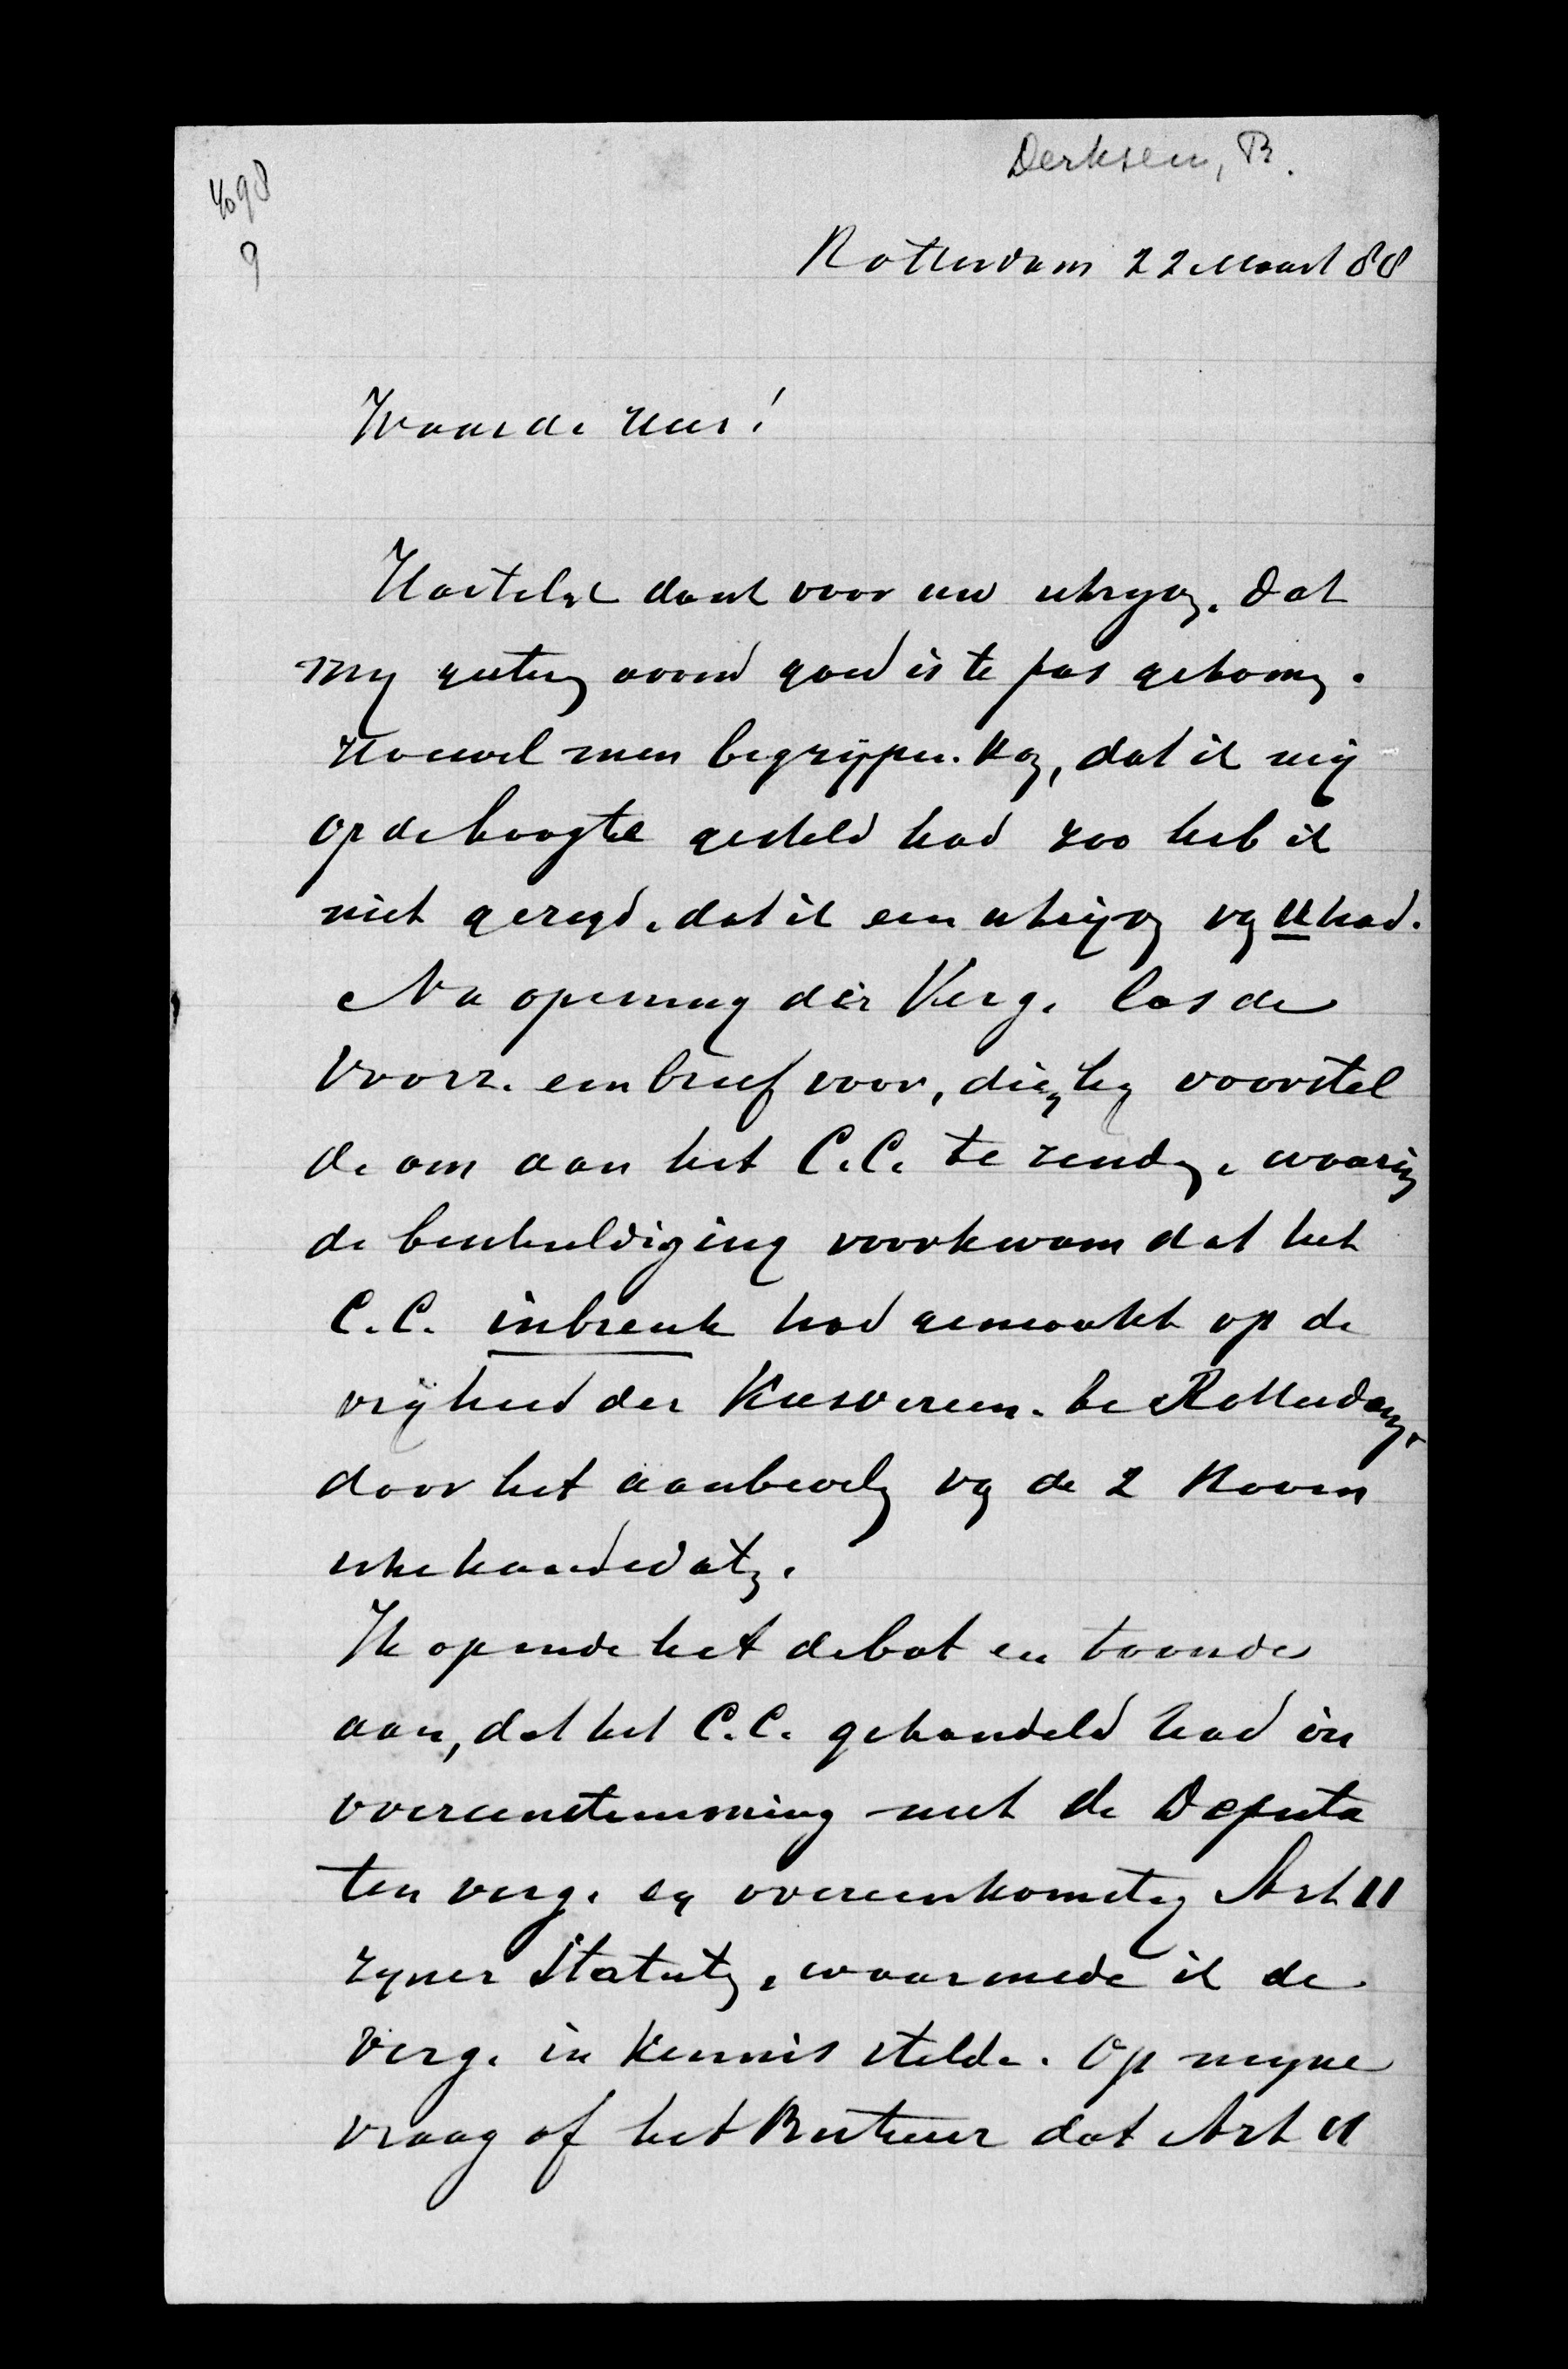 Derksen, B.
4098
9
Rotterdam 22 Maart 88
Waarde Heer!
Hartelijk dank voor uw schrijven. Dat
mij gisteren avond goed is te pas gekomen.
Hoewel men begrijpen kon, dat ik mij
op de hoogte gesteld had zoo heb ik
niet gezegd, dat ik een schrijven van U had.
Na opening der Verg. las de
Voorz. een brief voor, dien hij voorstel
de om aan het C.C. te zenden, waarin
de beschuldiging voorkwam dat het
C.C. inbreuk had gemaakt op de
vrijheid der Kiesvereen. te Rotterdam,
door het aanbevelen van de 2 Room
sche kandidaten.
Ik opende het debat en toonde
aan, dat het C.C. gehandeld had in
overeenstemming met de Deputa
ten verg. en overeenkomstig Art 11
zyner Statuten, waarmede ik de
Verg. in kennis stelde. Op myne
vraag of het Bestuur dat Art 11